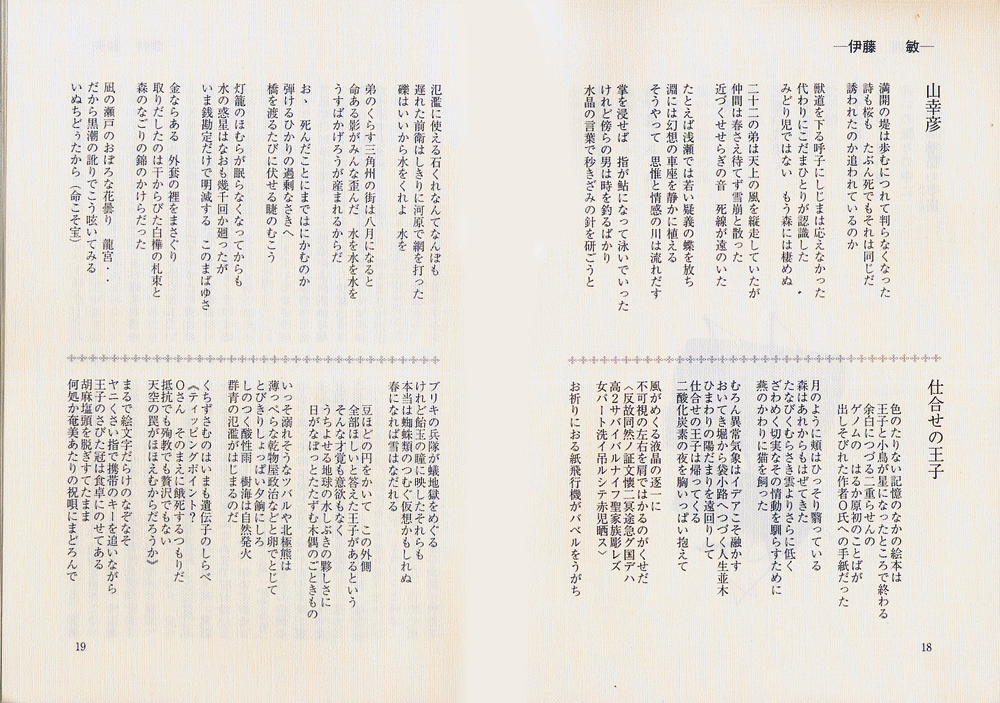 ―伊藤　敏―
山幸彦
満開の堤は歩むにつれて判らなくなった
詩も桜も　たぶん死でもそれは同じだ
誘われたのか追われているのか
獣道を下る呼子にしじまは応えなかった
代わりにこだまひとりが認識した
みどり児ではない　もう森には棲めぬ
二十二の弟は天上の風を縦走していたが
仲間は春さえ待てず雪崩と散った
近づくせせらぎの音　死線が遠のいた
たとえば浅瀬では若い疑義の蝶を放ち
淵には幻想の車座を静かに植える
そうやって　思惟と情感の川は流れだす
掌を浸せば　指が鮎になって泳いでいった
けれど傍らの男は時を釣るばかり
水晶の言葉で秒きざみの針を研ごうと
氾濫に使える石くれなんてなんぼも
遅れた前衛はしきりに河原で網を打った
礫はいいから水をくれよ　水を
弟のくらす三角州の街は八月になると
命ある影がみんな歪んだ　水を水を水を
うすばかげろうが産まれるからだ
お、死んだことにまではにかむのか
弾けるひかりの過剰なさきへ
橋を渡るたびに伏せる睫のむこう
灯籠のほむらが眠らなくなってからも
水の惑星はなおも幾千回か廻ったが
いま銭勘定だけで明滅する　このまばゆさ
金ならある　外套の裡をまさぐり
取りだしたのは干からびた白樺の札束と
森のなごりの錦のかけらだった
凪の瀬戸のおぼろな花曇り　龍宮・・
だから黒潮の訛りでこう呟いてみる
いぬちどぅたから（命こそ宝）
仕合せの王子
色のたりない記憶のなかの絵本は
王子と小鳥が星になったところで終わる
余白につづる二重らせんの
ゲノムの　はるか原初のことばが
出しそびれた作者Ｏ氏への手紙だった
月のように頬はひっそり翳っている
森はあれからもはぜてきた
たなびくむらさき雲よりさらに低く
ざわめく切実なその情動を馴らすために
燕のかわりに猫を飼った
むろん異常気象はイデアこそ融かす
おいてき堀から袋小路へつづく人生並木
ひまわりの陽だまりを遠回りして
仕合せの王子は帰ってくる
二酸化炭素の夜を胸いっぱい抱えて
風がめくる液晶の逐一に
不可視の左右を肩ではかるのがくせだ
〈反故同然ノ証文懐ニ冥途急グ国デハ
高２サバイバルナイフ聖家族彫レズ
女パート洗イ吊ルシテ赤児晒ス〉
お祈りにおる紙飛行機がバベルをうがち
ブリキの兵隊が蟻地獄をめぐる
けれど飴玉の瞳に映したそれらも
本当は蜘蛛類のつむぐ仮想かもしれぬ
春になれば雪はなだれる
豆ほどの円をかいて　この外側
全部ほしいと答えた王子があるという
そんな才覚も意欲もなく
うちよせる地球の水しぶきの夥しさに
日がなぼっとたたずむ木偶のごときもの
いっそ溺れそうなツバルや北極熊は
薄っぺらな乾物屋政治などと卵でとじて
とびきりしょっぱい夕餉にしろ
しのつく酸性雨　樹海は自然発火
群青の氾濫がはじまるのだ
くちずさむのはいまも遺伝子のしらべ
《ティッピングポイント？
Ｏさん　そのまえに餓死するつもりだ
抵抗でも殉教でも贅沢でもない
天空の罠がほほえむからだろうか》
まるで絵文字だらけのなぞなぞ
ヤニくさい指で携帯のキーを追いながら
王子のさびた冠は食卓にのせてある
胡麻塩頭を脱ぎすてたまま
何処か奄美あたりの祝唄にまどろんで
18
19